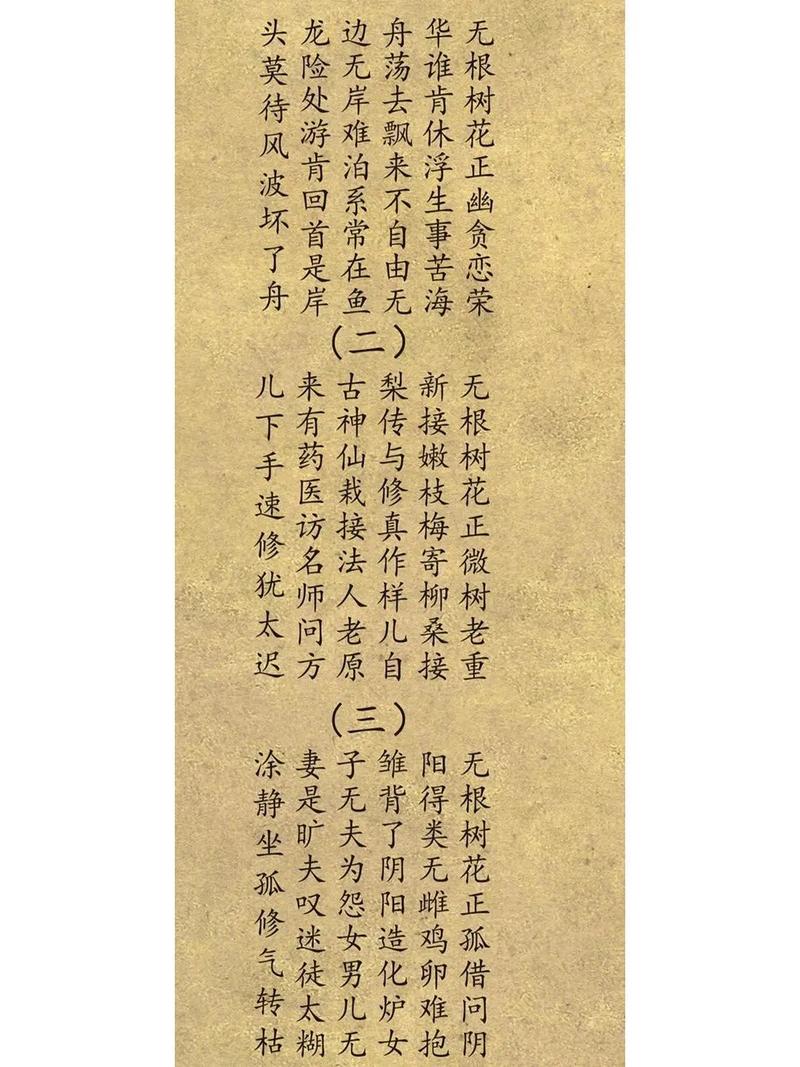 无根树花正幽贪恋荣
华谁肯休浮生事苦海
舟荡去飘来不自由无
边无岸难泊系常在鱼
龙险处游肯回首是岸
头莫待风波坏了舟
（二）
无根树花正微树老重
新接嫩枝梅寄柳桑接
梨传与修真作样儿自
古神仙栽接法人老原
来有药医访名师问方
儿下手速修犹太迟
（三）
无根树花正孤借问阴
阳得类无雌鸡卵难抱
雏背了阴阳造化炉女
子无夫为怨女男儿无
妻是旷夫叹迷徒太糊
涂静坐孤修气转枯